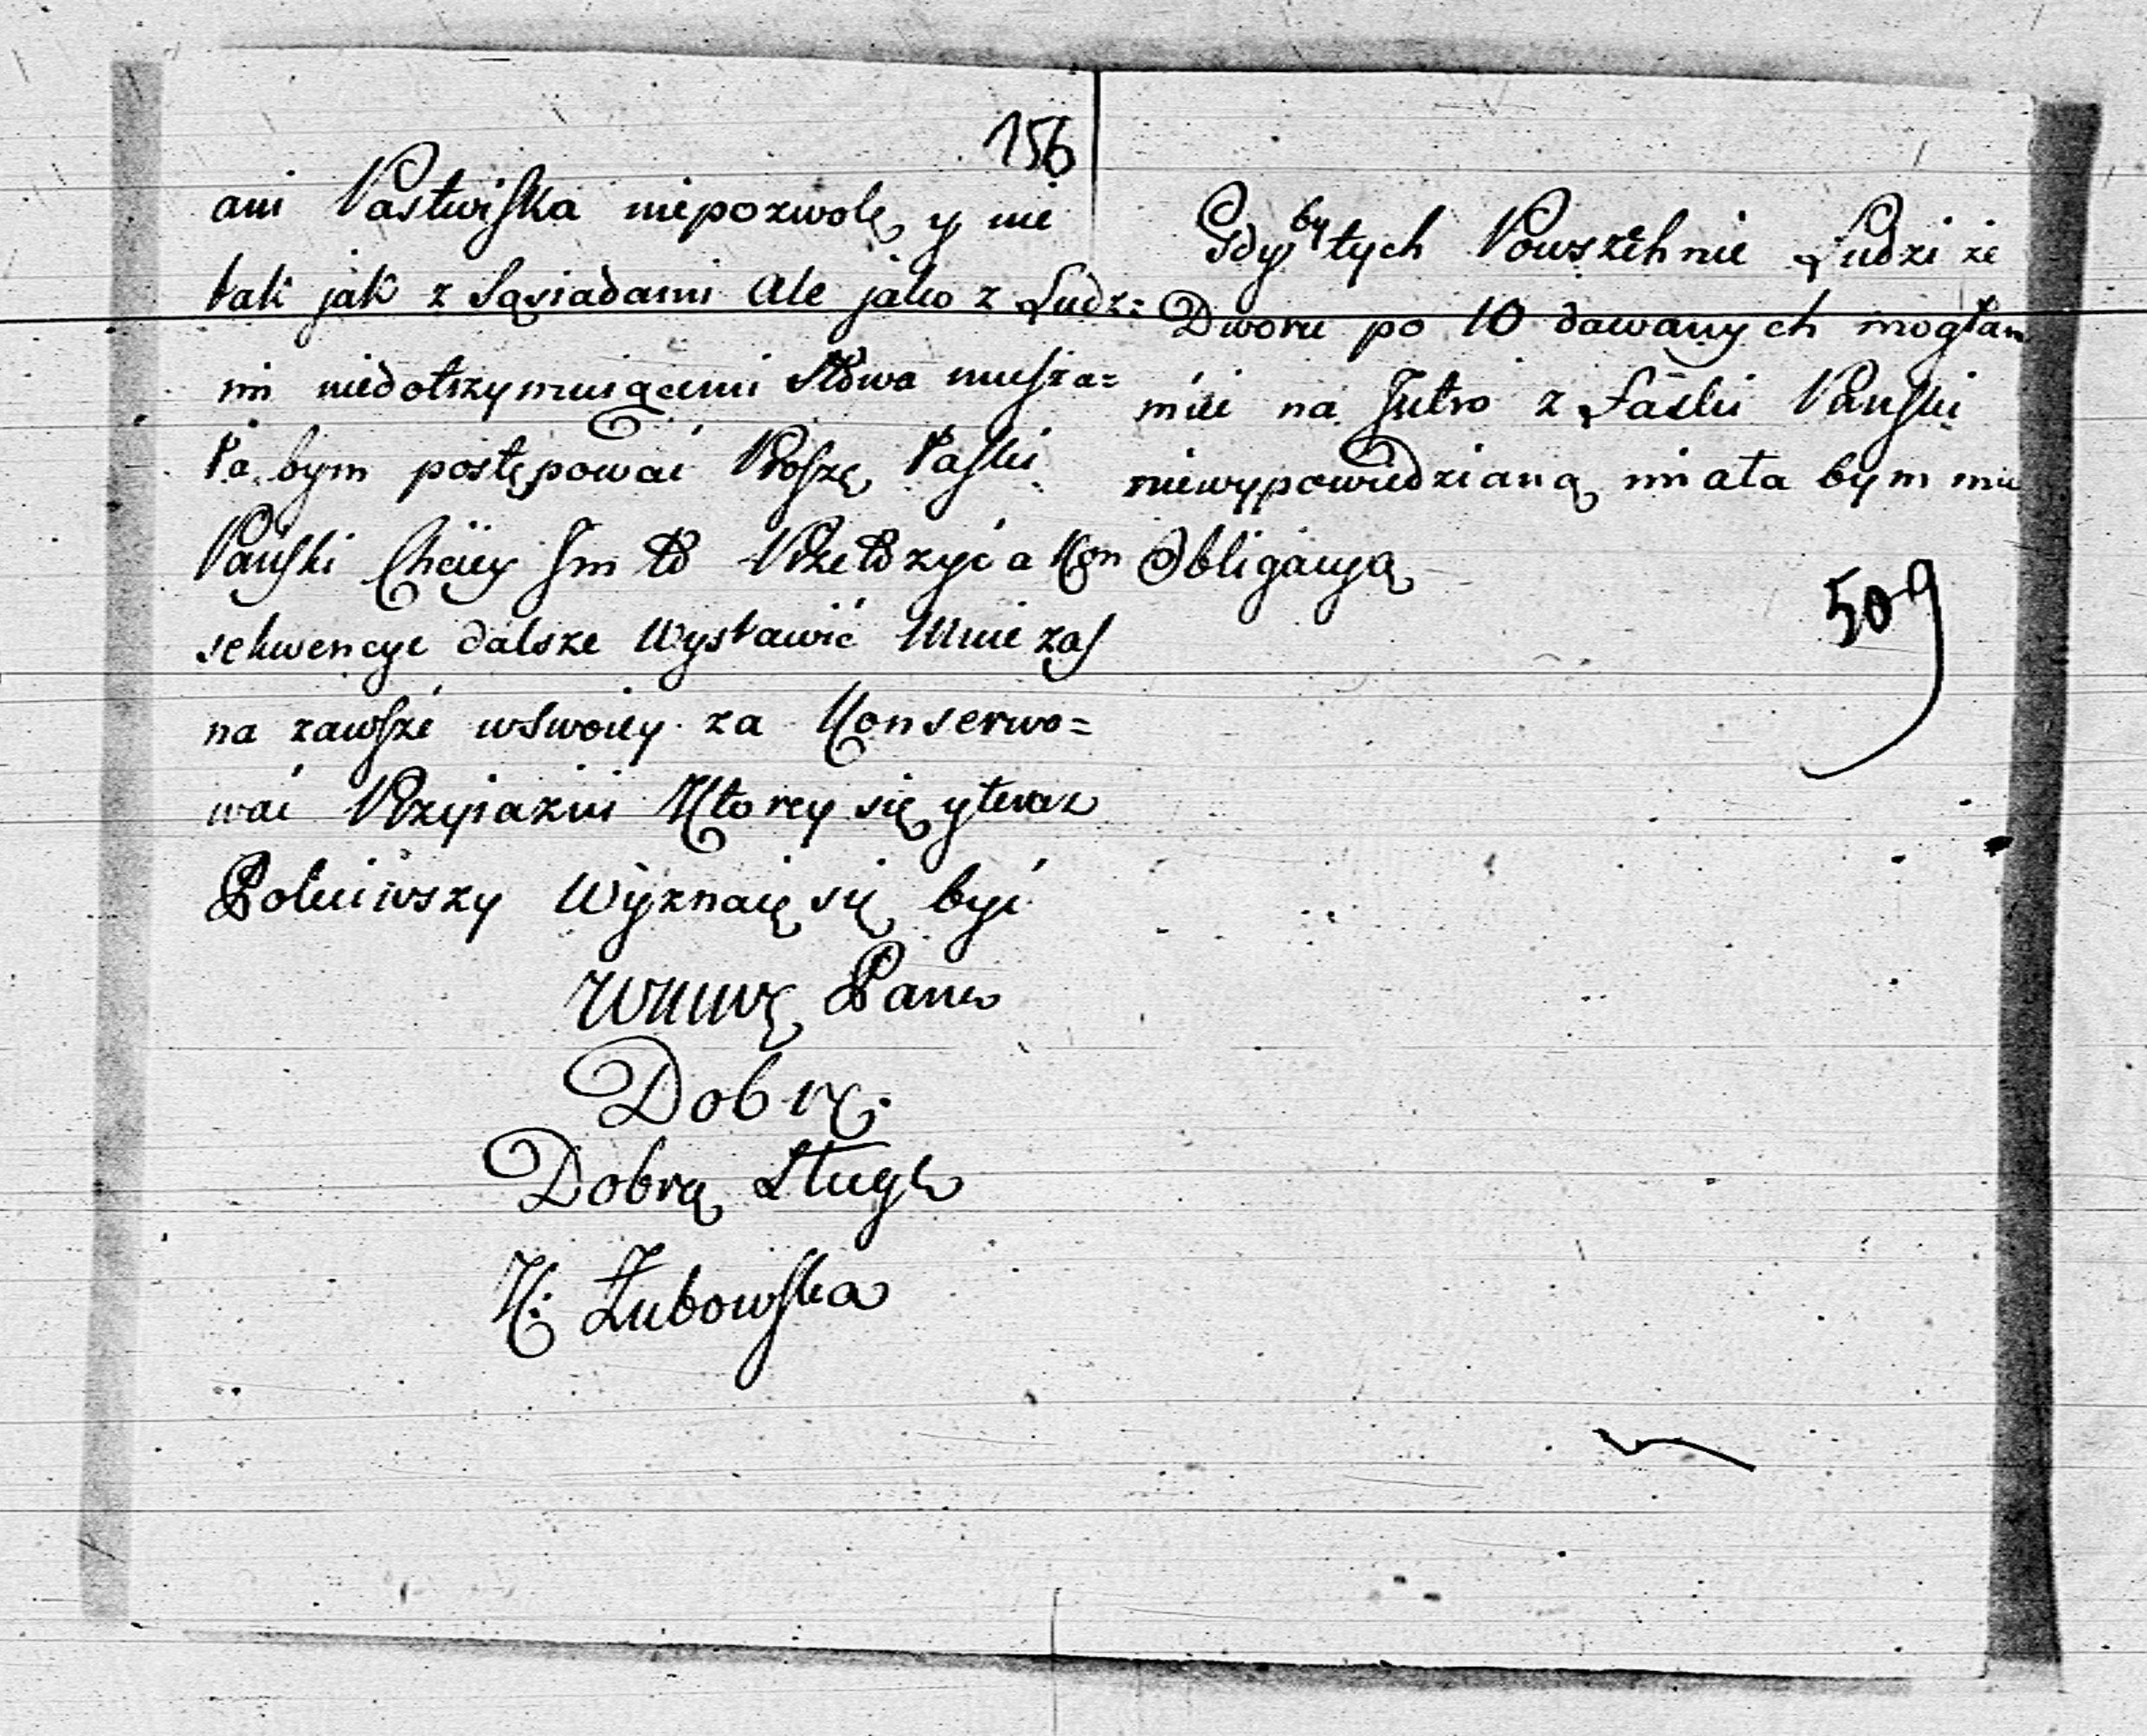 156
ani Pastwiska niepozwolę y nie
tak jak z Sąsiadami ale jako z Ludź:
mi niedotrzymuiącemi Słowa musza=
ła bym postępowac Proszę łaski
Pański Chciey Jm to Przełozyć a Kon
sekwencye dalsze Wystawić Mnie zas
na zawsze wswoiey za Konserwo=
wać Przyiazni Ktorey się y teraz
Poleciwszy Wyznaię się być
WMWę Pana
Dobrę:
Dobrą Sługą
K: Łubowska
Gdy by tych Powszehnie Ludzi ze
Dworu po 10 dawanych mogłam
mieć na Jutro z Łaski Pański
niewypowiedzianą miała bym mu
Obligacyą
509